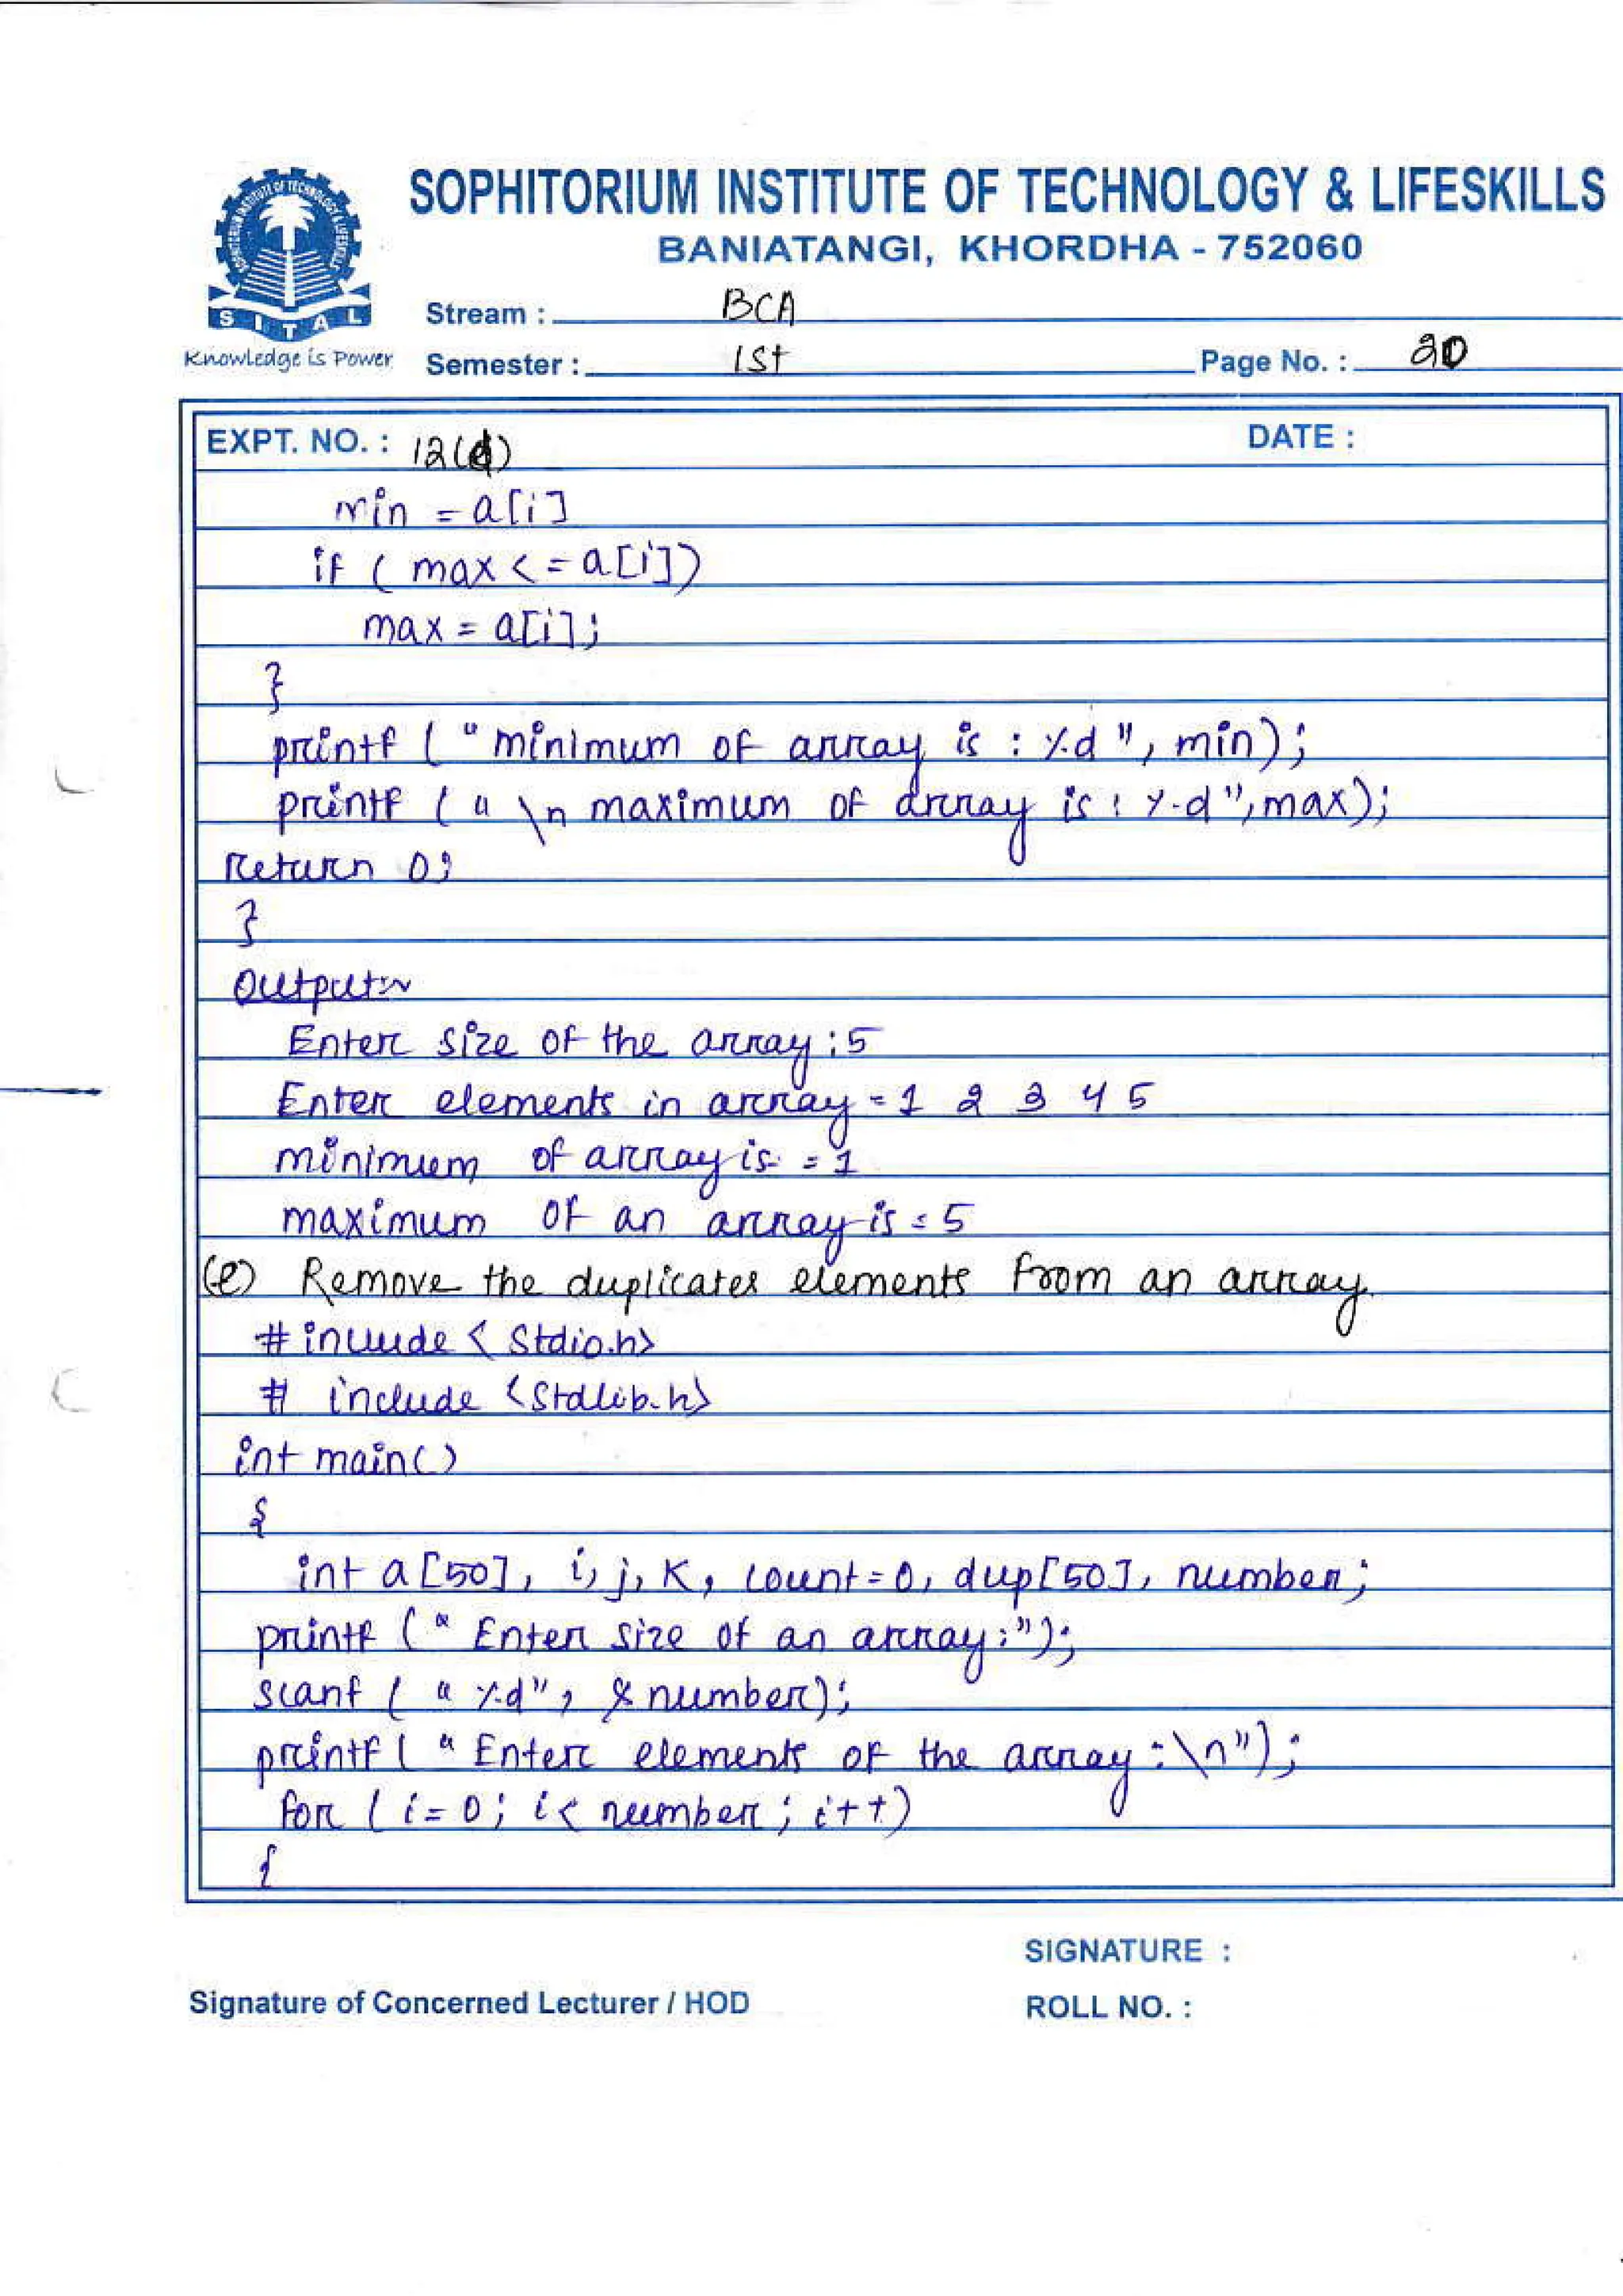 SOPHITORIUM INSTITUTE OF TECHNOLOGY & LIFESKILLS
BANIATANGI, KHORDHA - 752060
SITAL
Knowledge is Power
Stream : BCA
Semester : 1st Page No. : 20
EXPT. NO. : 12(d) DATE :
min = a[i]
if ( max <= a[i])
max = a[i];
}
printf ( "minimum of array is : %d", min);
printf ( " \n maximum of array is : %d", max);
return 0;
}
Output:~
Enter size of the array : 5
Enter elements in array = 1 2 3 4 5
minimum of array is = 1
maximum of an array is = 5
(e) Remove the duplicates elements from an array.
# include < stdio.h>
# include <stdlib.h>
int main()
{
int a [50], i, j, k, count = 0, dup[50], number;
printf (" Enter size of an array:");
scanf ( " %d", & number);
printf ( " Enter elements of the array : \n");
for ( i = 0; i < number ; i++)
{
SIGNATURE :
Signature of Concerned Lecturer / HOD
ROLL NO. :